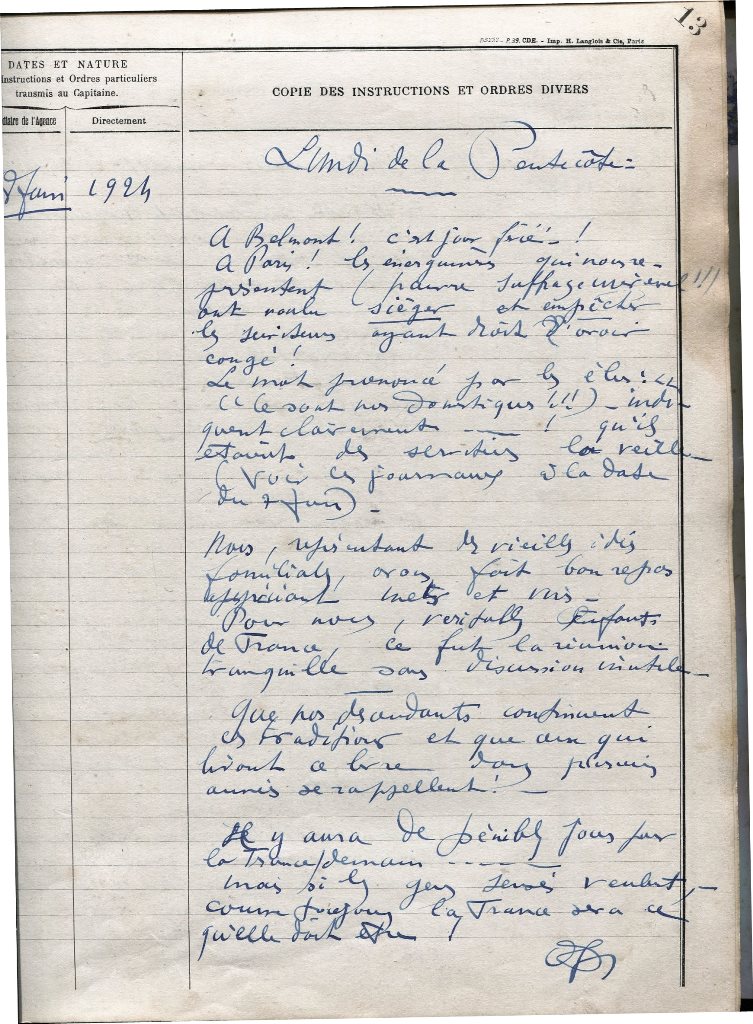 13
P. 39. CDE. - Imp. H. Langlois & Cie, Paris
DATES ET NATURE
Instructions et Ordres particuliers
transmis au Capitaine.
diaire de l'Agence
Directement
COPIE DES INSTRUCTIONS ET ORDRES DIVERS
Lundi de la Pentecôte =
Juin 1924
A Belmont! c'est jour férié - !
A Paris! les énergumènes qui nous re-
présentent (pauvre suffrage universel!!!
ont voulu siéger et empêcher
les serviteurs ayant droit d'avoir
congé!
Le mot prononcé par les élus:
("ce sont nos domestiques!!!) - indi-
quent clairement ---- ! qu'ils
étaient des serviteurs la veille -
(Voir les journaux à la date
du 7 Juin) -
Nous, représentant des vieilles idées
familiales, avons fait bon repas
appréciant mets et vins -
Pour nous, véritables Enfants
de France, ce fut la réunion
tranquille sans discussion inutile -
Que nos descendants continuent
ces traditions et que ceux qui
liront ce livre dans
années se rappellent! -
Il y aura de pénibles jours pour
la France/demain -----
mais si les gens sensés veulent, -
comme toujours la France sera ce
qu'elle doit être !